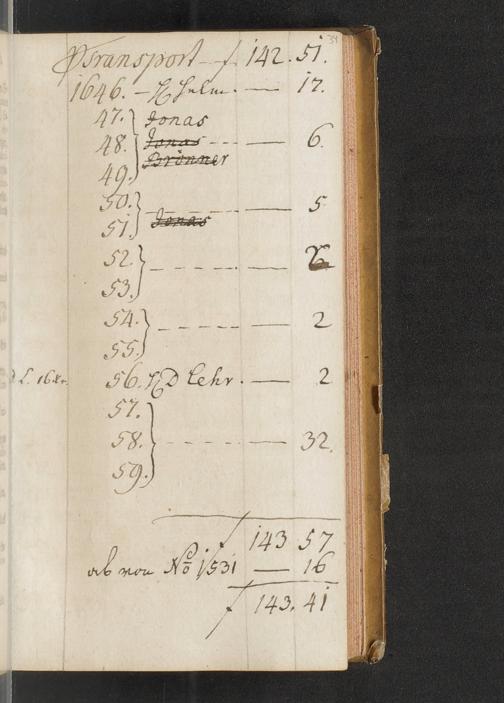 39
Transport — f 142. 51.
1646. — H Helm. — 17.
47. Jonas
48. Jonas --- — 6.
49. Brönner
50. ---- — 5
51. Jonas
52. ---- —
53.
54. ---- — 2
55.
56. H D Lehr. — 2
57.
58. ---- — 32.
59.
f 143. 57
ab von No 1531 — 16
f 143. 41